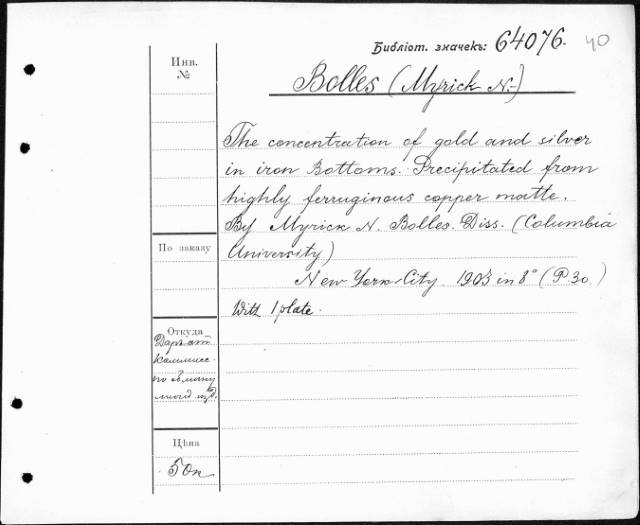 Библіот. значекъ: 64076. 40
Инв.
№
Bolles (Myrick N.)
The concentration of gold and silver
in iron Bottoms. Precipitated from
highly ferruginous copper matte.
By Myrick N. Bolles. Diss. (Columbia
University)
По заказу
New York-City. 1903 in 8° (P. 30.)
With 1 plate.
Откуда
Даръ отъ
Коммисс.
по обмѣну
Цѣна
50к